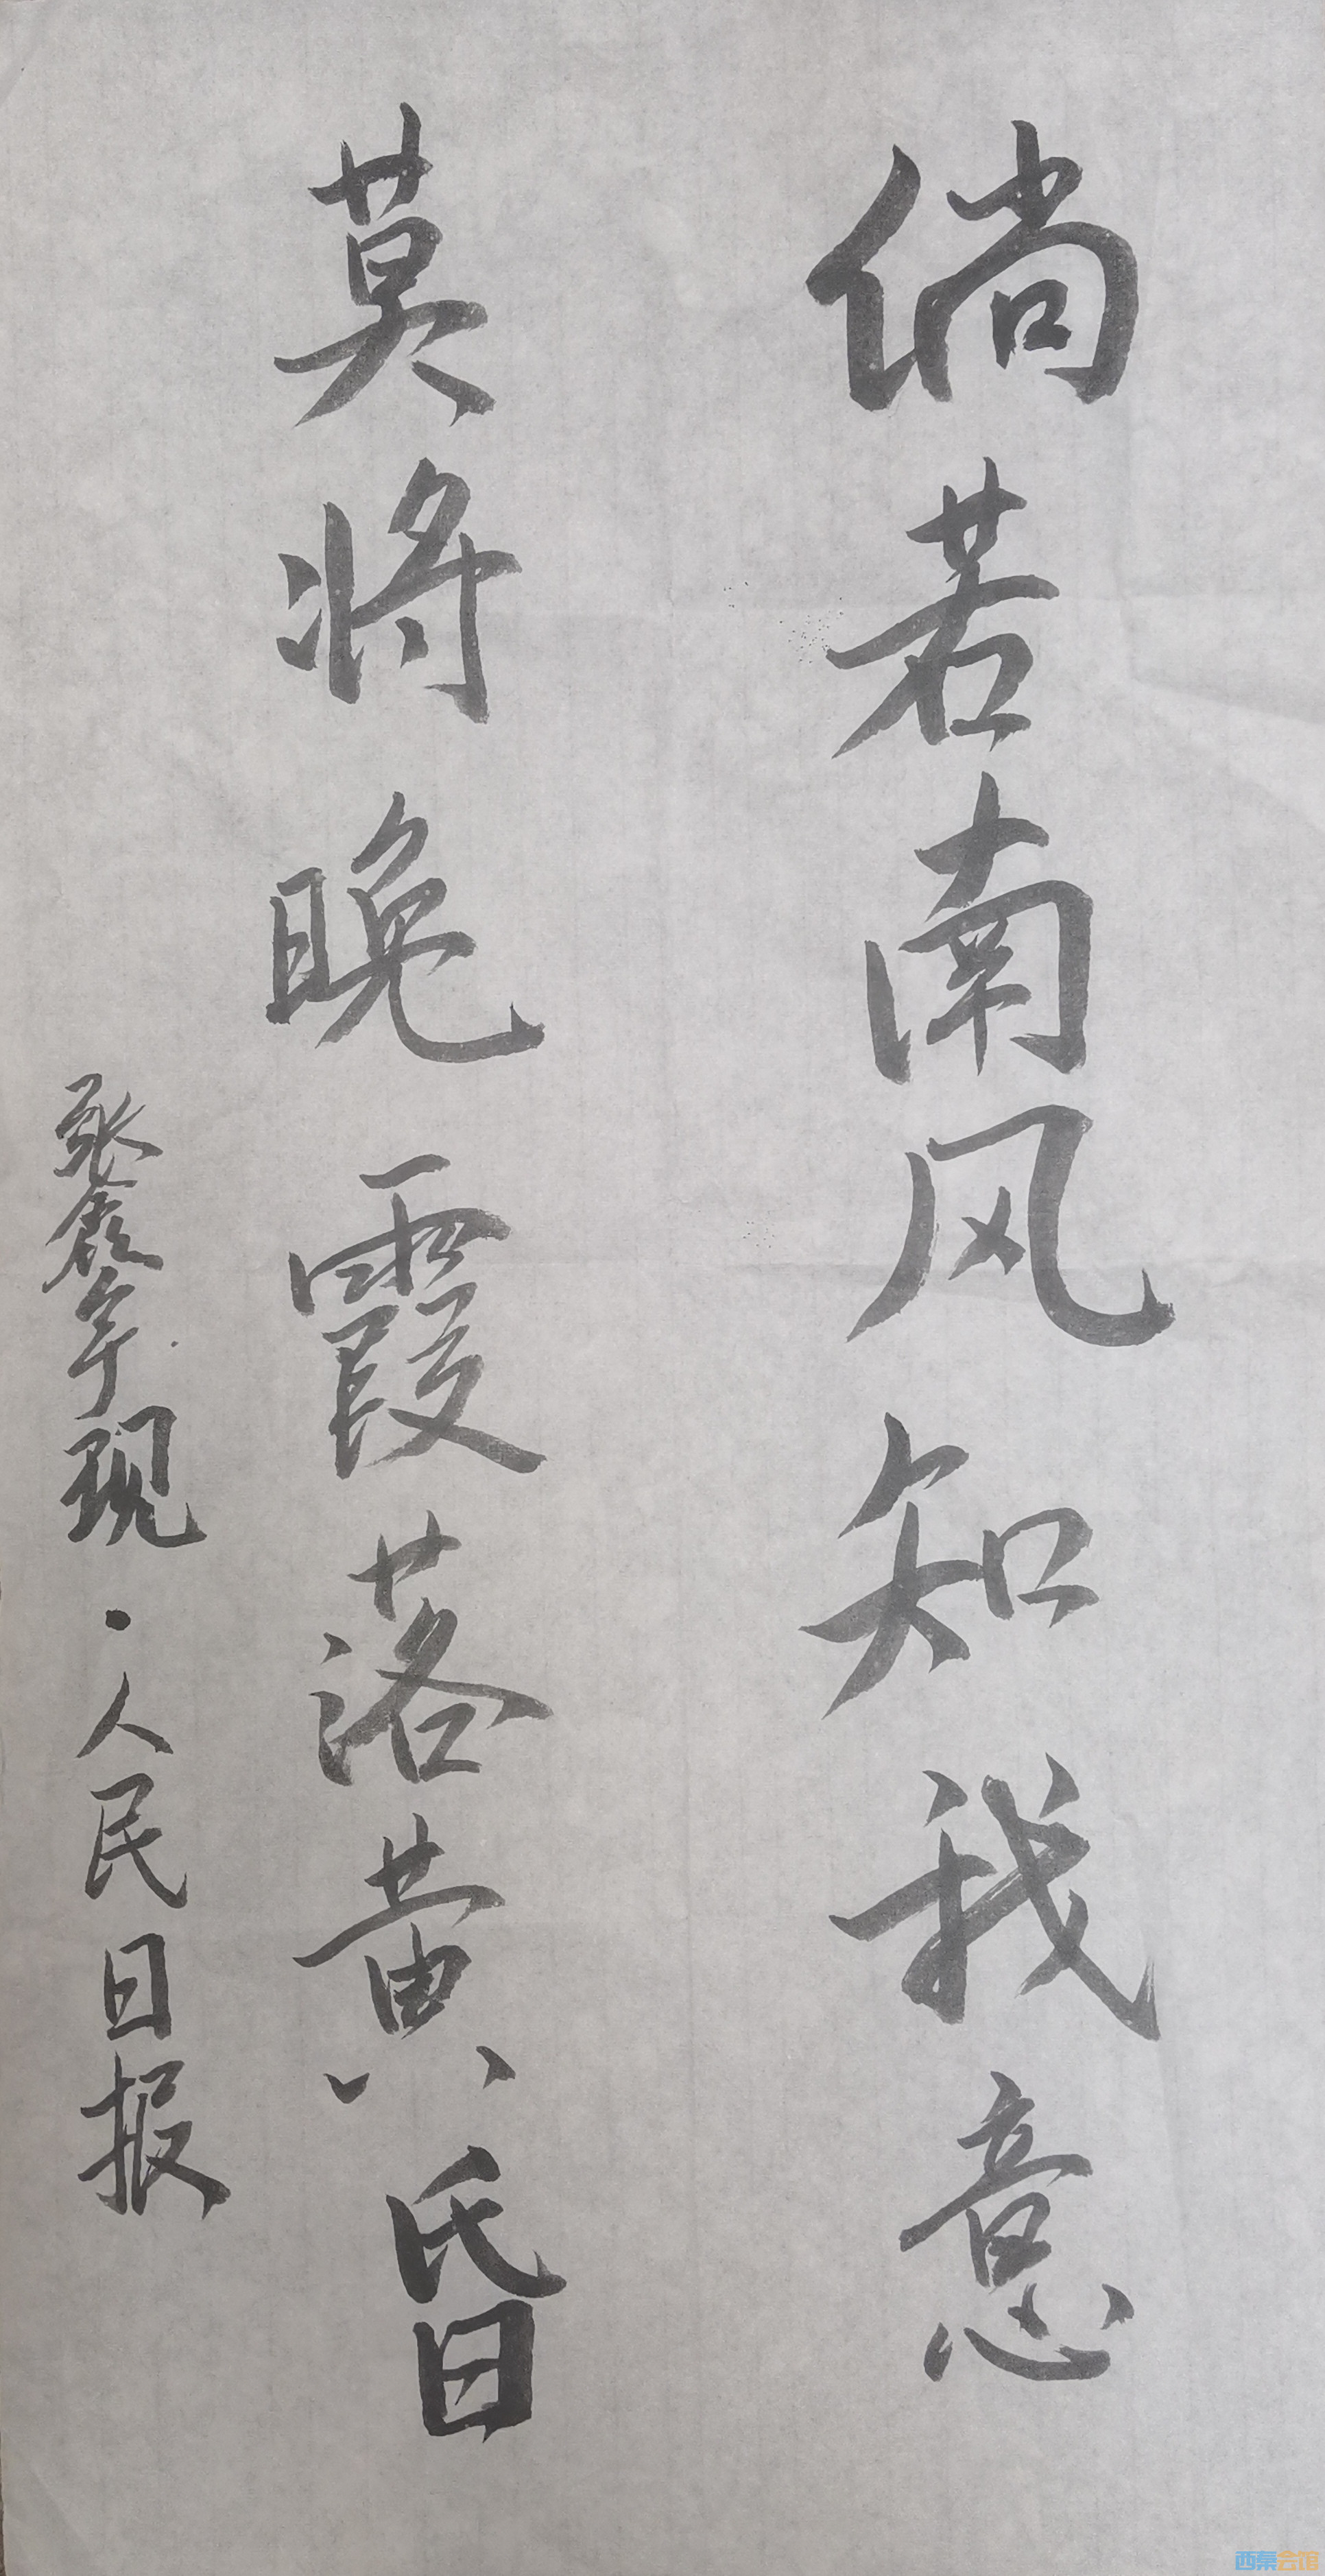 倘若南风知我意
莫将晚霞落黄昏
张鑫年现·人民日报
西秦会馆